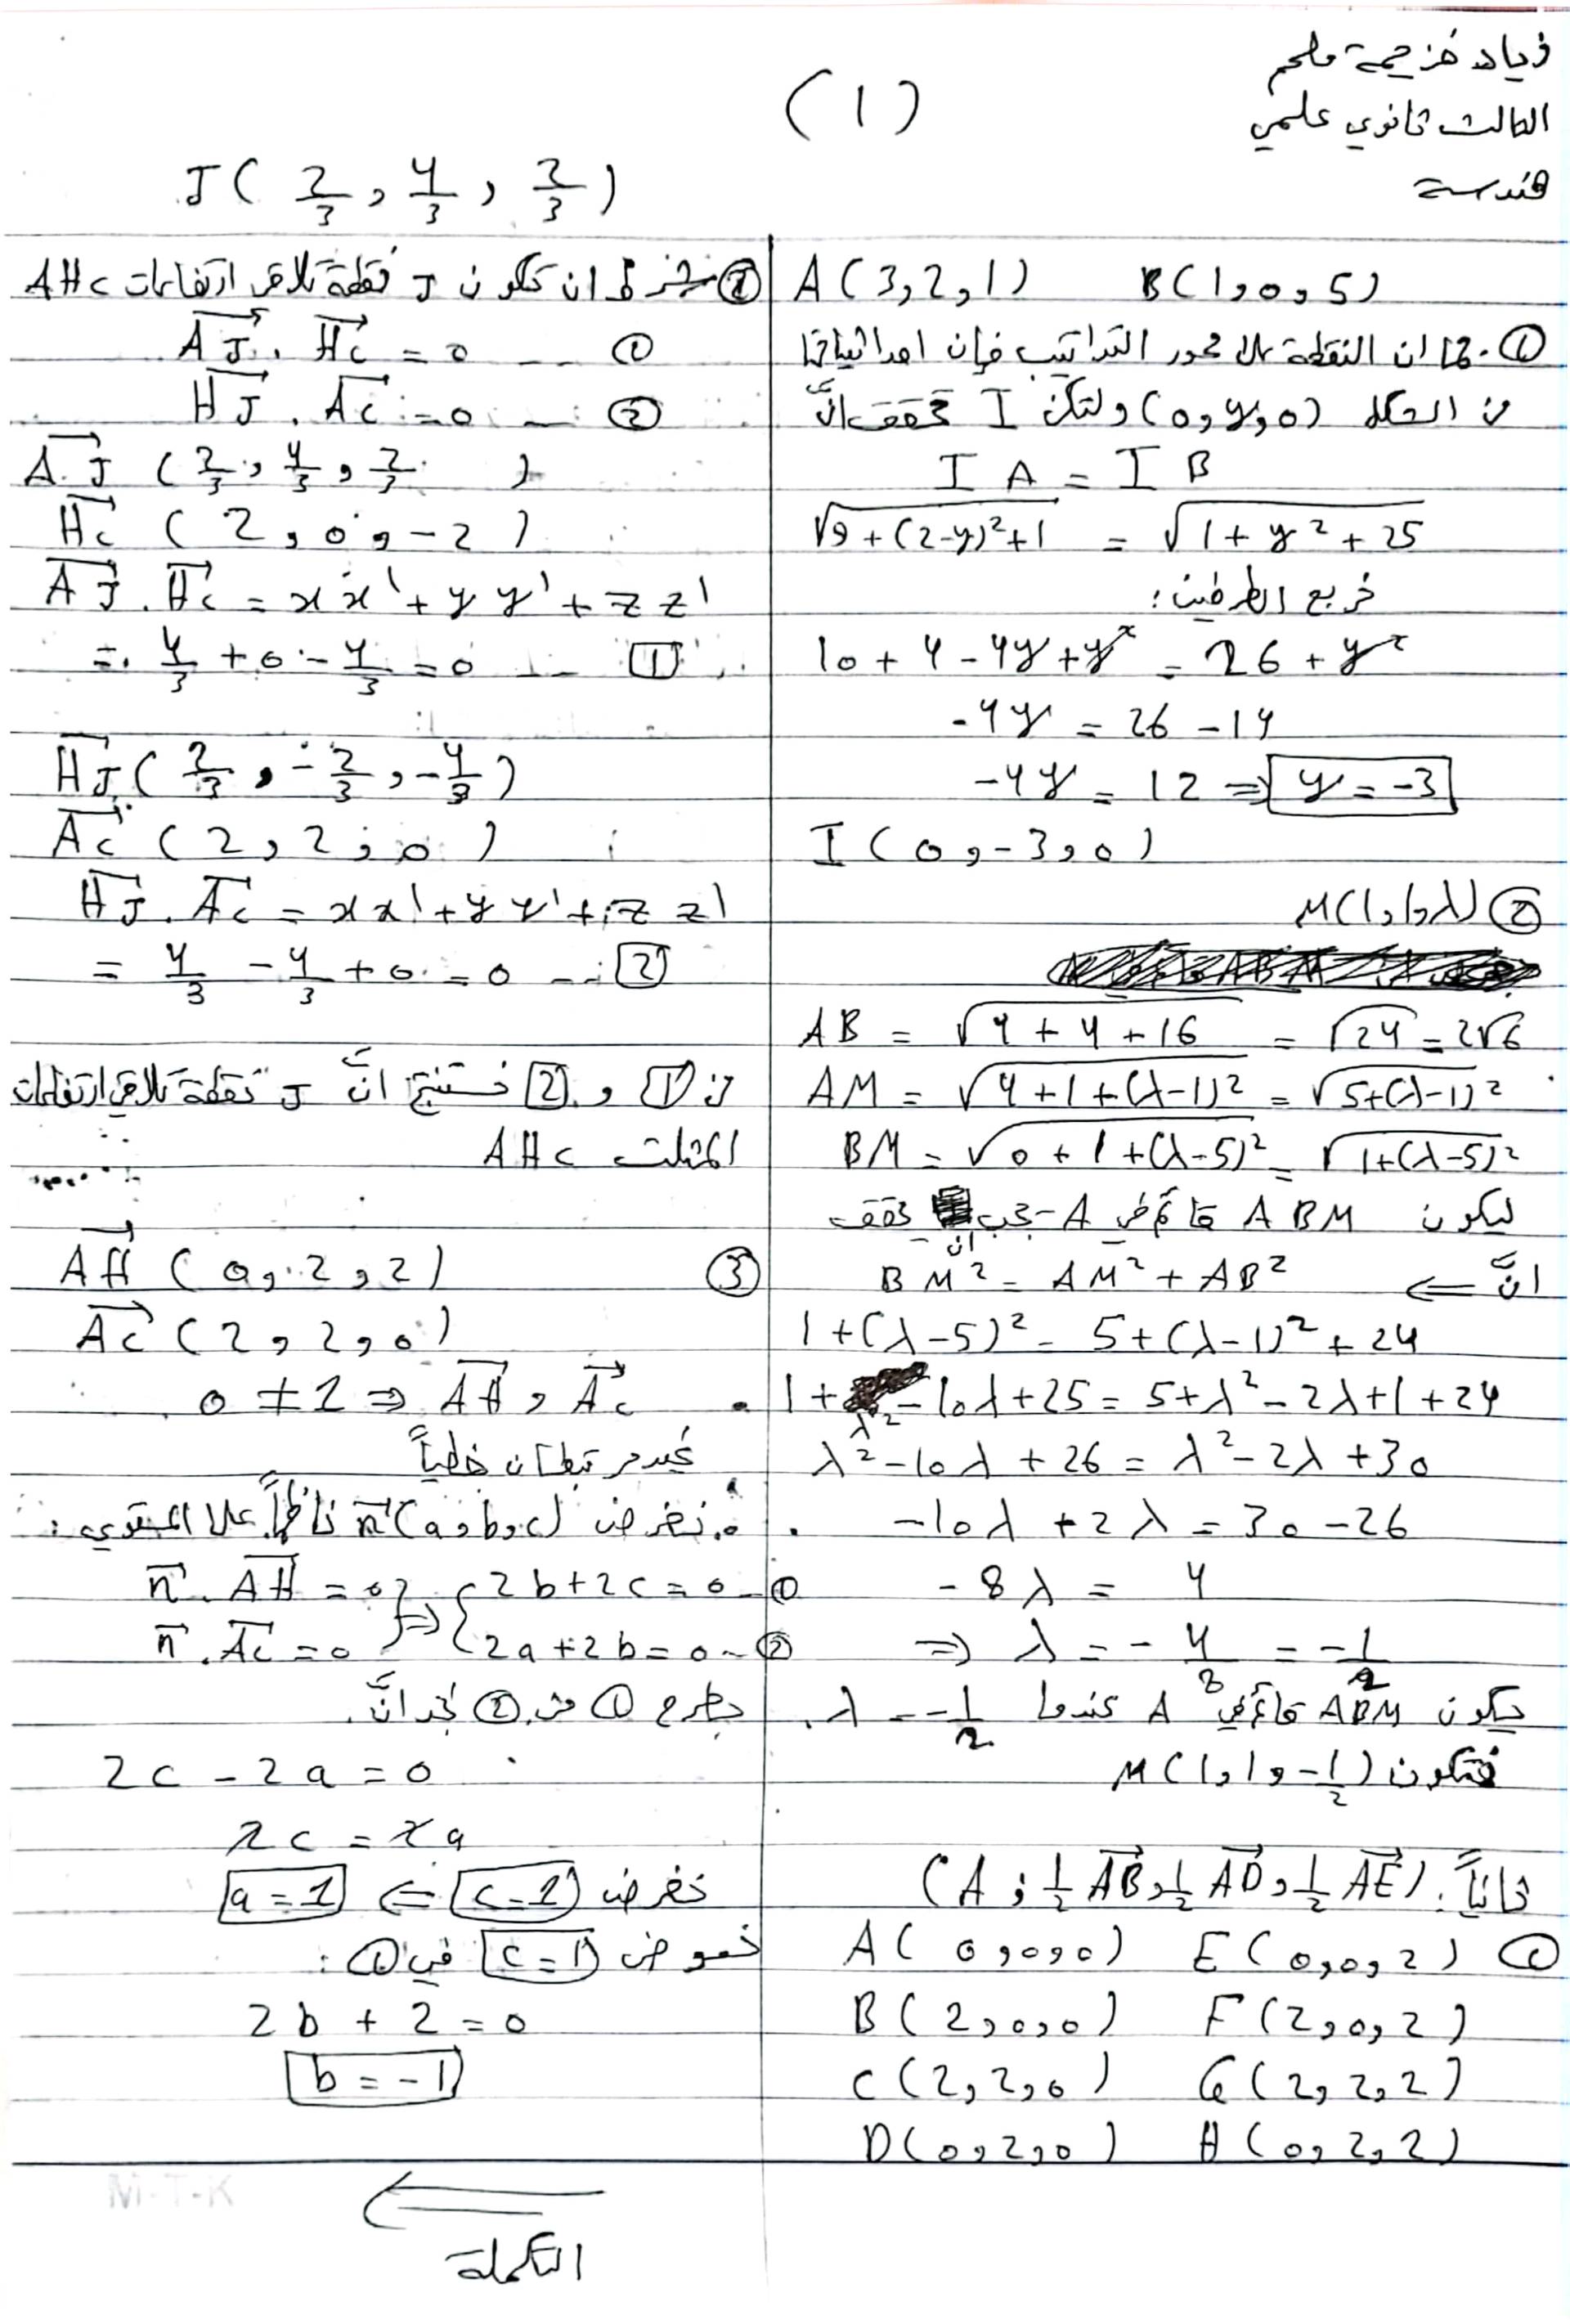 زياد خزيمة ملحم
الثالث ثانوي علمي
هندسة
(1)
J( 2/3 , 4/3 , 2/3 )
A(3,2,1) B(1,0,5)
① بما ان النقطة على محور التراتيب فإن احداثياتها
من الشكل (0,y,0) ولتكن I تحقق انَّ
IA = IB
√9+(2-y)²+1 = √1+y²+25
نربع الطرفين:
10+4-4y+y² = 26+y²
-4y = 26-14
-4y = 12 ⇒ y = -3
I(0,-3,0)
② M(1,1,λ)
AB = √4+4+16 = √24 = 2√6
AM = √4+1+(λ-1)² = √5+(λ-1)²
BM = √0+1+(λ-5)² = √1+(λ-5)²
ليكون ABM قائم في A يجب ان تحقق
انَّ ⇐ BM² = AM² + AB²
1+(λ-5)² = 5+(λ-1)²+24
1+λ²-10λ+25 = 5+λ²-2λ+1+24
λ²-10λ+26 = λ²-2λ+30
-10λ+2λ = 30-26
-8λ = 4
⇒ λ = -4/8 = -1/2
يكون ABM قائم في A عندما λ = -1/2
فتكون M(1,1,-1/2)
ثانياً: (A; 1/2 AB→, 1/2 AD→, 1/2 AE→)
① A(0,0,0) E(0,0,2)
B(2,0,0) F(2,0,2)
C(2,2,0) G(2,2,2)
D(0,2,0) H(0,2,2)
② شرط ان تكون J نقطة تلاقي ارتفاعات AHC
AJ→ . HC→ = 0 ... ①
HJ→ . AC→ = 0 ... ②
AJ→ ( 2/3 , 4/3 , 2/3 )
HC→ ( 2 , 0 , -2 )
AJ→ . HC→ = xx' + yy' + zz'
= 4/3 + 0 - 4/3 = 0 ... [1]
HJ→ ( 2/3 , -2/3 , -4/3 )
AC→ ( 2 , 2 , 0 )
HJ→ . AC→ = xx' + yy' + zz'
= 4/3 - 4/3 + 0 = 0 ... [2]
من [1] و [2] نستنتج انَّ J نقطة تلاقي ارتفاعات
المثلث AHC
③ AH→ (0,2,2)
AC→ (2,2,0)
0 ≠ 1 ⇒ AH→ , AC→
غير مرتبطان خطياً
نفرض n→(a,b,c) ناظماً على المستوي:
n→ . AH→ = 0 } ⇒ { 2b+2c = 0 - ①
n→ . AC→ = 0 2a+2b = 0 - ②
بطرح ① من ② نجد انَّ
2c - 2a = 0
2c = 2a
نفرض c = 1 ⇐ a = 1
نعوض c = 1 في ①:
2b + 2 = 0
b = -1
M-T-K
التكملة